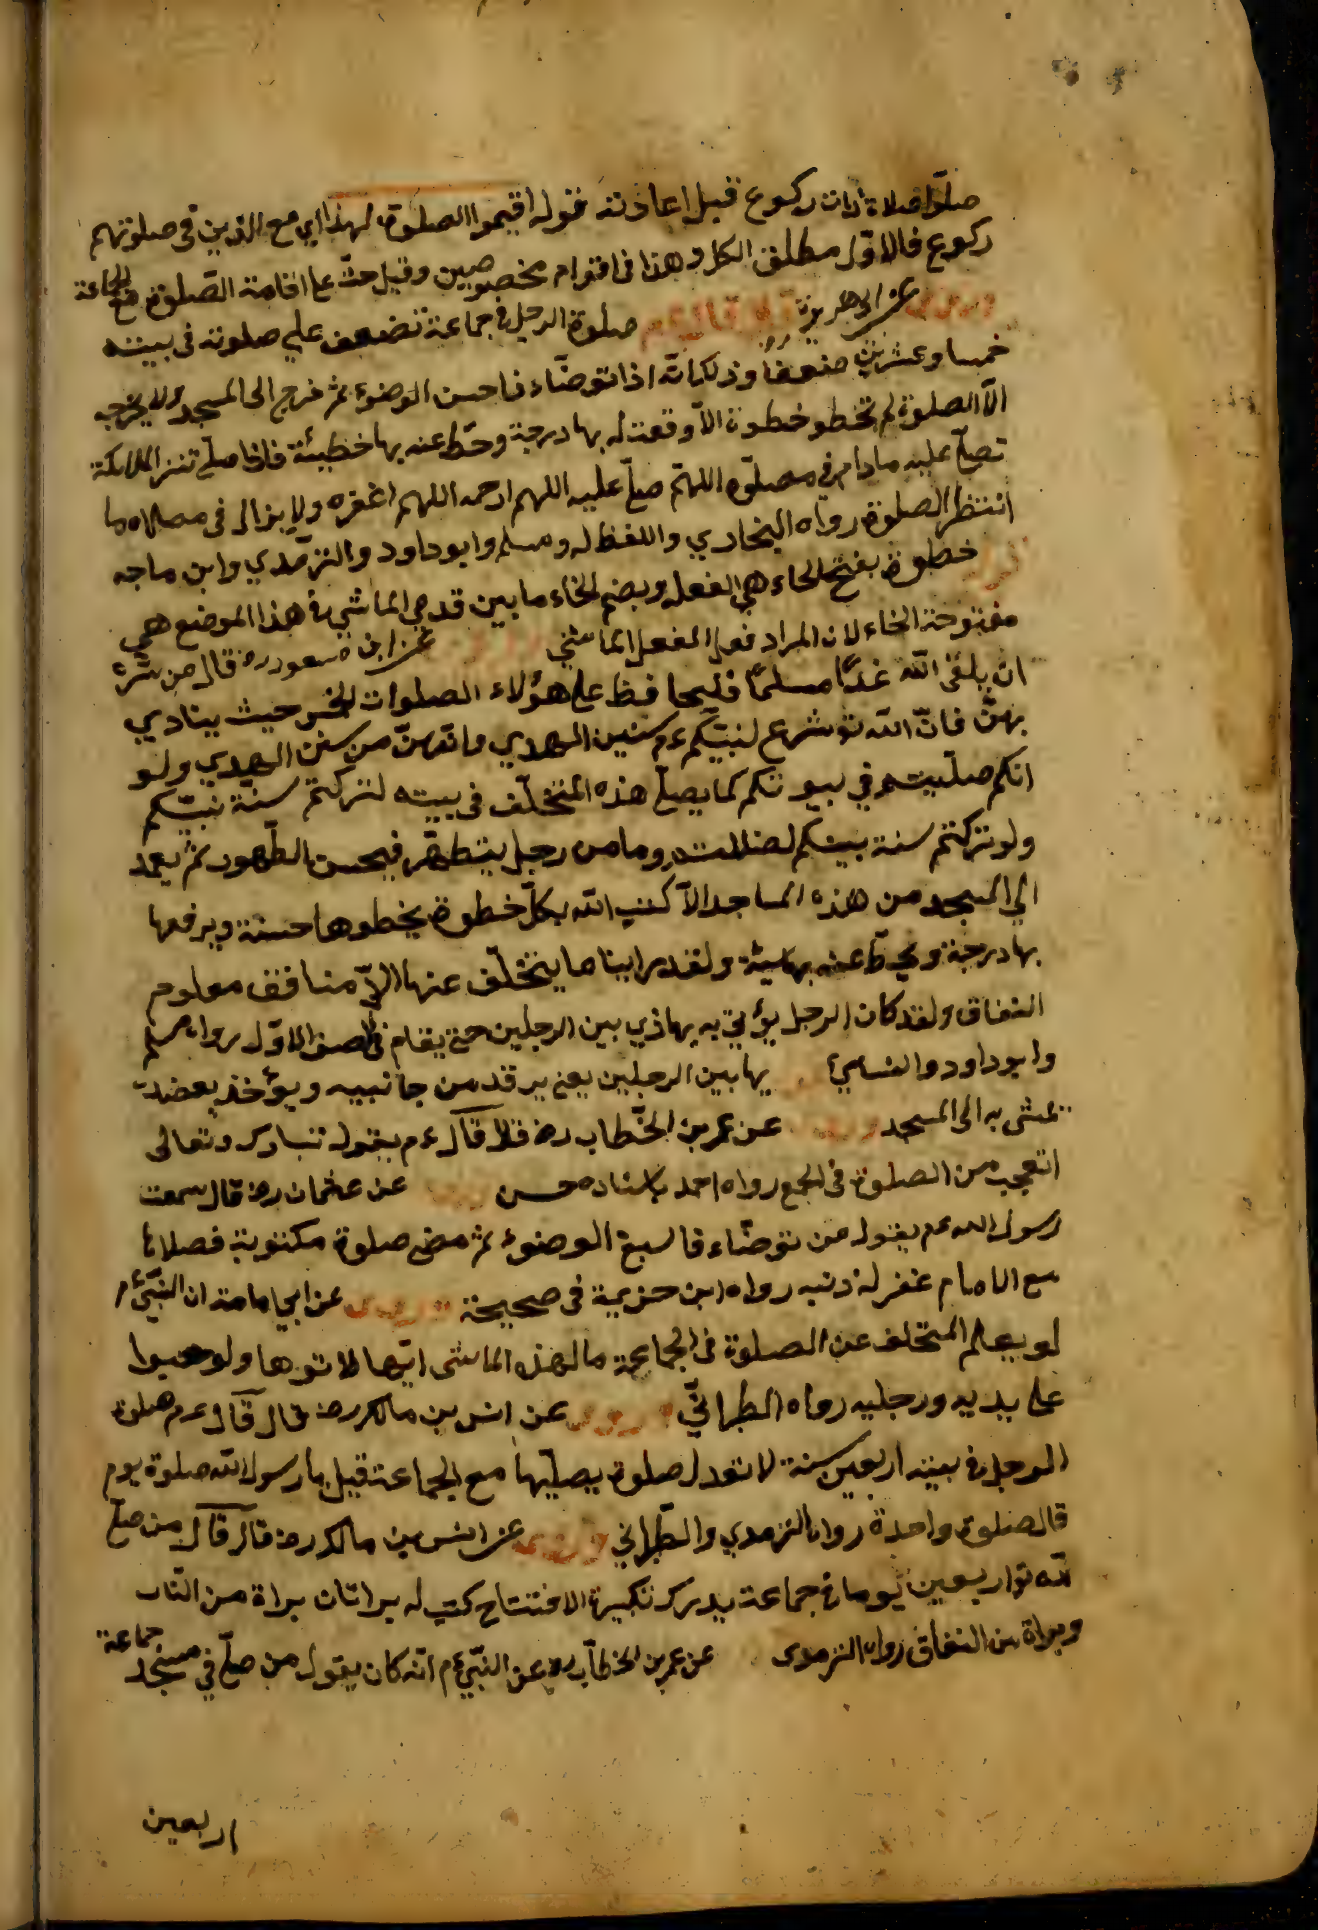 صلوا صلاة ذات ركوع قيل اعادته قوله اقيموا الصلوة لهذا اي مع الذين في صلوتهم
ركوع فالاول مطلق الكل وهذا في اقوام مخصوصين وقيل حث على اقامة الصلوة مع الجماعة
عن ابي هريرة قال صلوة الرجل في جماعة تضعف على صلوته في بيته
خمسا وعشرين ضعفا وذلك انه اذا توضاء فاحسن الوضوء ثم خرج الى المسجد ولا يخرجه
الا الصلوة لم تخطو خطوة الا وقعت له بها درجة وحط عنه بها خطيئة فاذا صلى تنزل الملائكة
تصلي عليه ما دام في مصلاه اللهم صل عليه اللهم ارحمه اللهم اغفره ولا يزال في مصلاه ما
انتظر الصلوة رواه البخاري واللفظ له ومسلم وابو داود والترمدي وابن ماجه
خطوة بفتح الخاء هي الفعلة وبضم الخاء ما بين قدمي الماشي في هذا الموضع هي
مفتوحة الخاء لان المراد فعل الماشي عن ابن مسعود رض قال من سره
ان يلقى الله غدا مسلما فليحافظ على هؤلاء الصلوات الخمس حيث ينادي
بهن فان الله تع شرع لنبيكم عم سنن الهدي وانهن من سنن الهدي ولو
انكم صليتم في بيوتكم كما يصلي هذه المتخلف في بيته لتركتم سنة نبيكم
ولو تركتم سنة نبيكم لضللتم وما من رجل يتطهر فيحسن الطهور ثم يعمد
الي المسجد من هذه المساجد الا كتب الله بكل خطوة يخطوها حسنة ويرفعها
بها درجة ويحط عنه بها سيئة ولقد راينا ما يتخلف عنها الا منافق معلوم
النفاق ولقد كان الرجل يؤتي به يهاذي بين الرجلين حتى يقام في الصف الاول رواه مسلم
وابو داود والنسائي يها بين الرجلين يعني يرفد من جانبيه ويؤخذ بعضديه
تمشى به الى المسجد عن عمر بن الخطاب رض قال قال عم يقول تبارك وتعالى
اتعجب من الصلوة في الجمع رواه احمد باسناده حسن عن عثمان رض قال سمعت
رسول الله عم يقول من توضاء فاسبغ الوضوء ثم مضى صلوة مكتوبة فصلاها
مع الامام غفر له ذنبه رواه ابن خزيمة في صحيحة عن ابي امامة ان النبي عم
لو يعلم المتخلف عن الصلوة في الجماعة ما لهذه الماشى اليها لاتوها ولو حبوا
على يديه ورجليه رواه الطبراني عن انس بن مالك رض قال قال عم صلوة
الرجل في بيته اربعين سنة لا تعدل صلوة يصليها مع الجماعة قيل يا رسول الله صلوة يوم
قال صلوة واحدة رواه الترمدي والطبراني عن انس بن مالك رض قال قال من صلى
لله تع اربعين يوما في جماعة يدرك تكبيرة الافتتاح كتب له براتان براة من النار
وبراة من النفاق رواه الترمدى عن عمر بن الخطاب رض عن النبي عم انه كان يقول من صلى في مسجد جماعة
اربعين